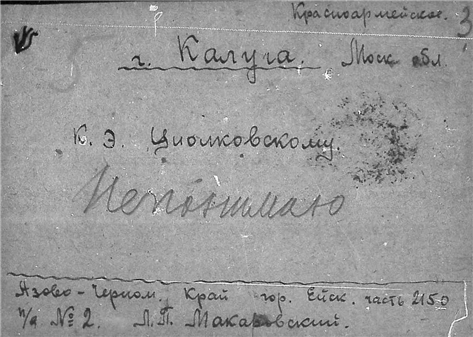 Красноармейское. 3
5
г. Калуга. Моск обл.
К. Э. Циолковскому.
Непонимаю
Азово-Черном. Край гор. Ейск. часть 2150
п/я № 2. Л. П. Макаровский.